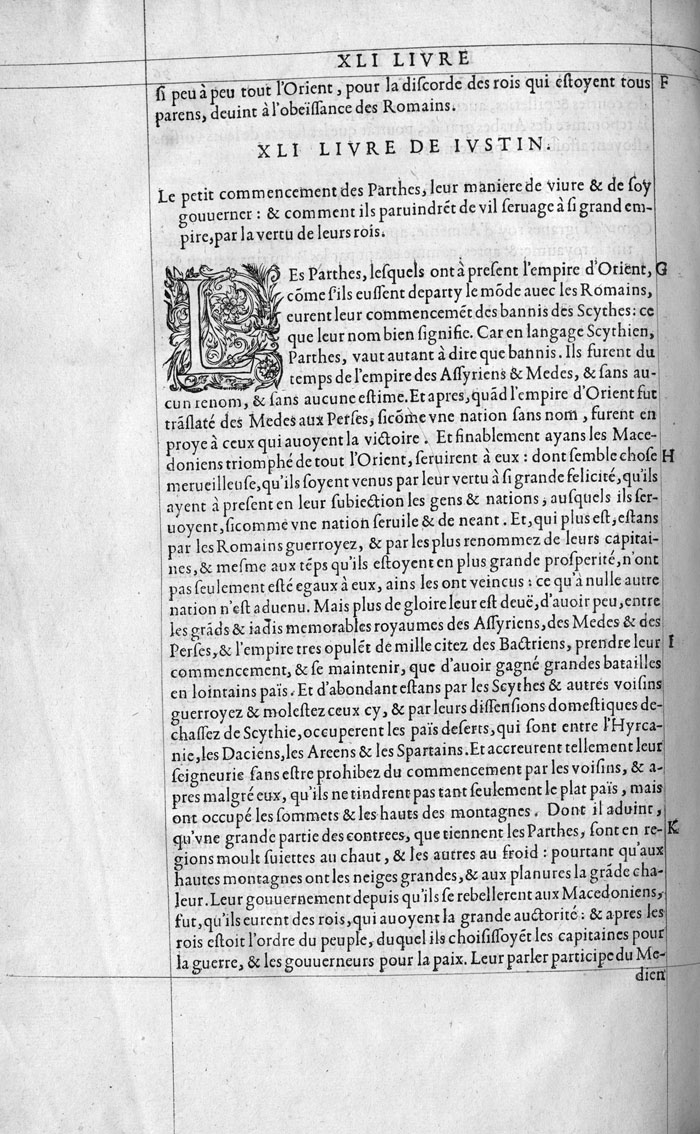 XLI LIVRE
ſi peu à peu tout l'Orient, pour la diſcorde des rois qui eſtoyent tous F
parens, deuint à l'obeïſſance des Romains.
XLI LIVRE DE IVSTIN.
Le petit commencement des Parthes, leur maniere de viure & de ſoy
gouuerner : & comment ils paruindrẽt de vil ſeruage à ſi grand em-
pire, par la vertu de leurs rois.
LEs Parthes, leſquels ont à preſent l'empire d'Oriẽt, G
cõme s'ils euſſent departy le mõde auec les Romains,
eurent leur commencemẽt des bannis des Scythes : ce
que leur nom bien ſignifie. Car en langage Scythien,
Parthes, vaut autant à dire que bannis. Ils furent du
temps de l'empire des Aſſyriens & Medes, & ſans au-
cun renom, & ſans aucune eſtime. Et apres, quãd l'empire d'Orient fut
trãſlaté des Medes aux Perſes, ſicõme vne nation ſans nom, furent en
proye à ceux qui auoyent la victoire. Et finablement ayans les Mace-
doniens triomphé de tout l'Orient, ſeruirent à eux : dont ſemble choſe H
merueilleuſe, qu'ils ſoyent venus par leur vertu à ſi grande felicité, qu'ils
ayent à preſent en leur ſubiection les gens & nations, auſquels ils ſer-
uoyent, ſicomme vne nation ſeruile & de neant. Et, qui plus eſt, eſtans
par les Romains guerroyez, & par les plus renommez de leurs capitai-
nes, & meſme aux tẽps qu'ils eſtoyent en plus grande proſperité, n'ont
pas ſeulement eſté egaux à eux, ains les ont veincus : ce qu'à nulle autre
nation n'eſt aduenu. Mais plus de gloire leur eſt deuë, d'auoir peu, entre
les grãds & iadis memorables royaumes des Aſſyriens, des Medes & des
Perſes, & l'empire tres opulẽt de mille citez des Bactriens, prendre leur I
commencement, & ſe maintenir, que d'auoir gagné grandes batailles
en lointains païs. Et d'abondant eſtans par les Scythes & autres voiſins
guerroyez & moleſtez ceux cy, & par leurs diſſenſions domeſtiques de-
chaſſez de Scythie, occuperent les païs deſerts, qui ſont entre l'Hyrca-
nie, les Daciens, les Areens & les Spartains. Et accreurent tellement leur
ſeigneurie ſans eſtre prohibez du commencement par les voiſins, & a-
pres malgré eux, qu'ils ne tindrent pas tant ſeulement le plat païs, mais
ont occupé les ſommets & les hauts des montagnes. Dont il aduint,
qu'vne grande partie des contrees, que tiennent les Parthes, ſont en re- K
gions moult ſuiettes au chaut, & les autres au froid : pourtant qu'aux
hautes montagnes ont les neiges grandes, & aux planures la grãde cha-
leur. Leur gouuernement depuis qu'ils ſe rebellerent aux Macedoniens,
fut, qu'ils eurent des rois, qui auoyent la grande auctorité : & apres les
rois eſtoit l'ordre du peuple, duquel ils choiſiſſoyẽt les capitaines pour
la guerre, & les gouuerneurs pour la paix. Leur parler participe du Me-
dien